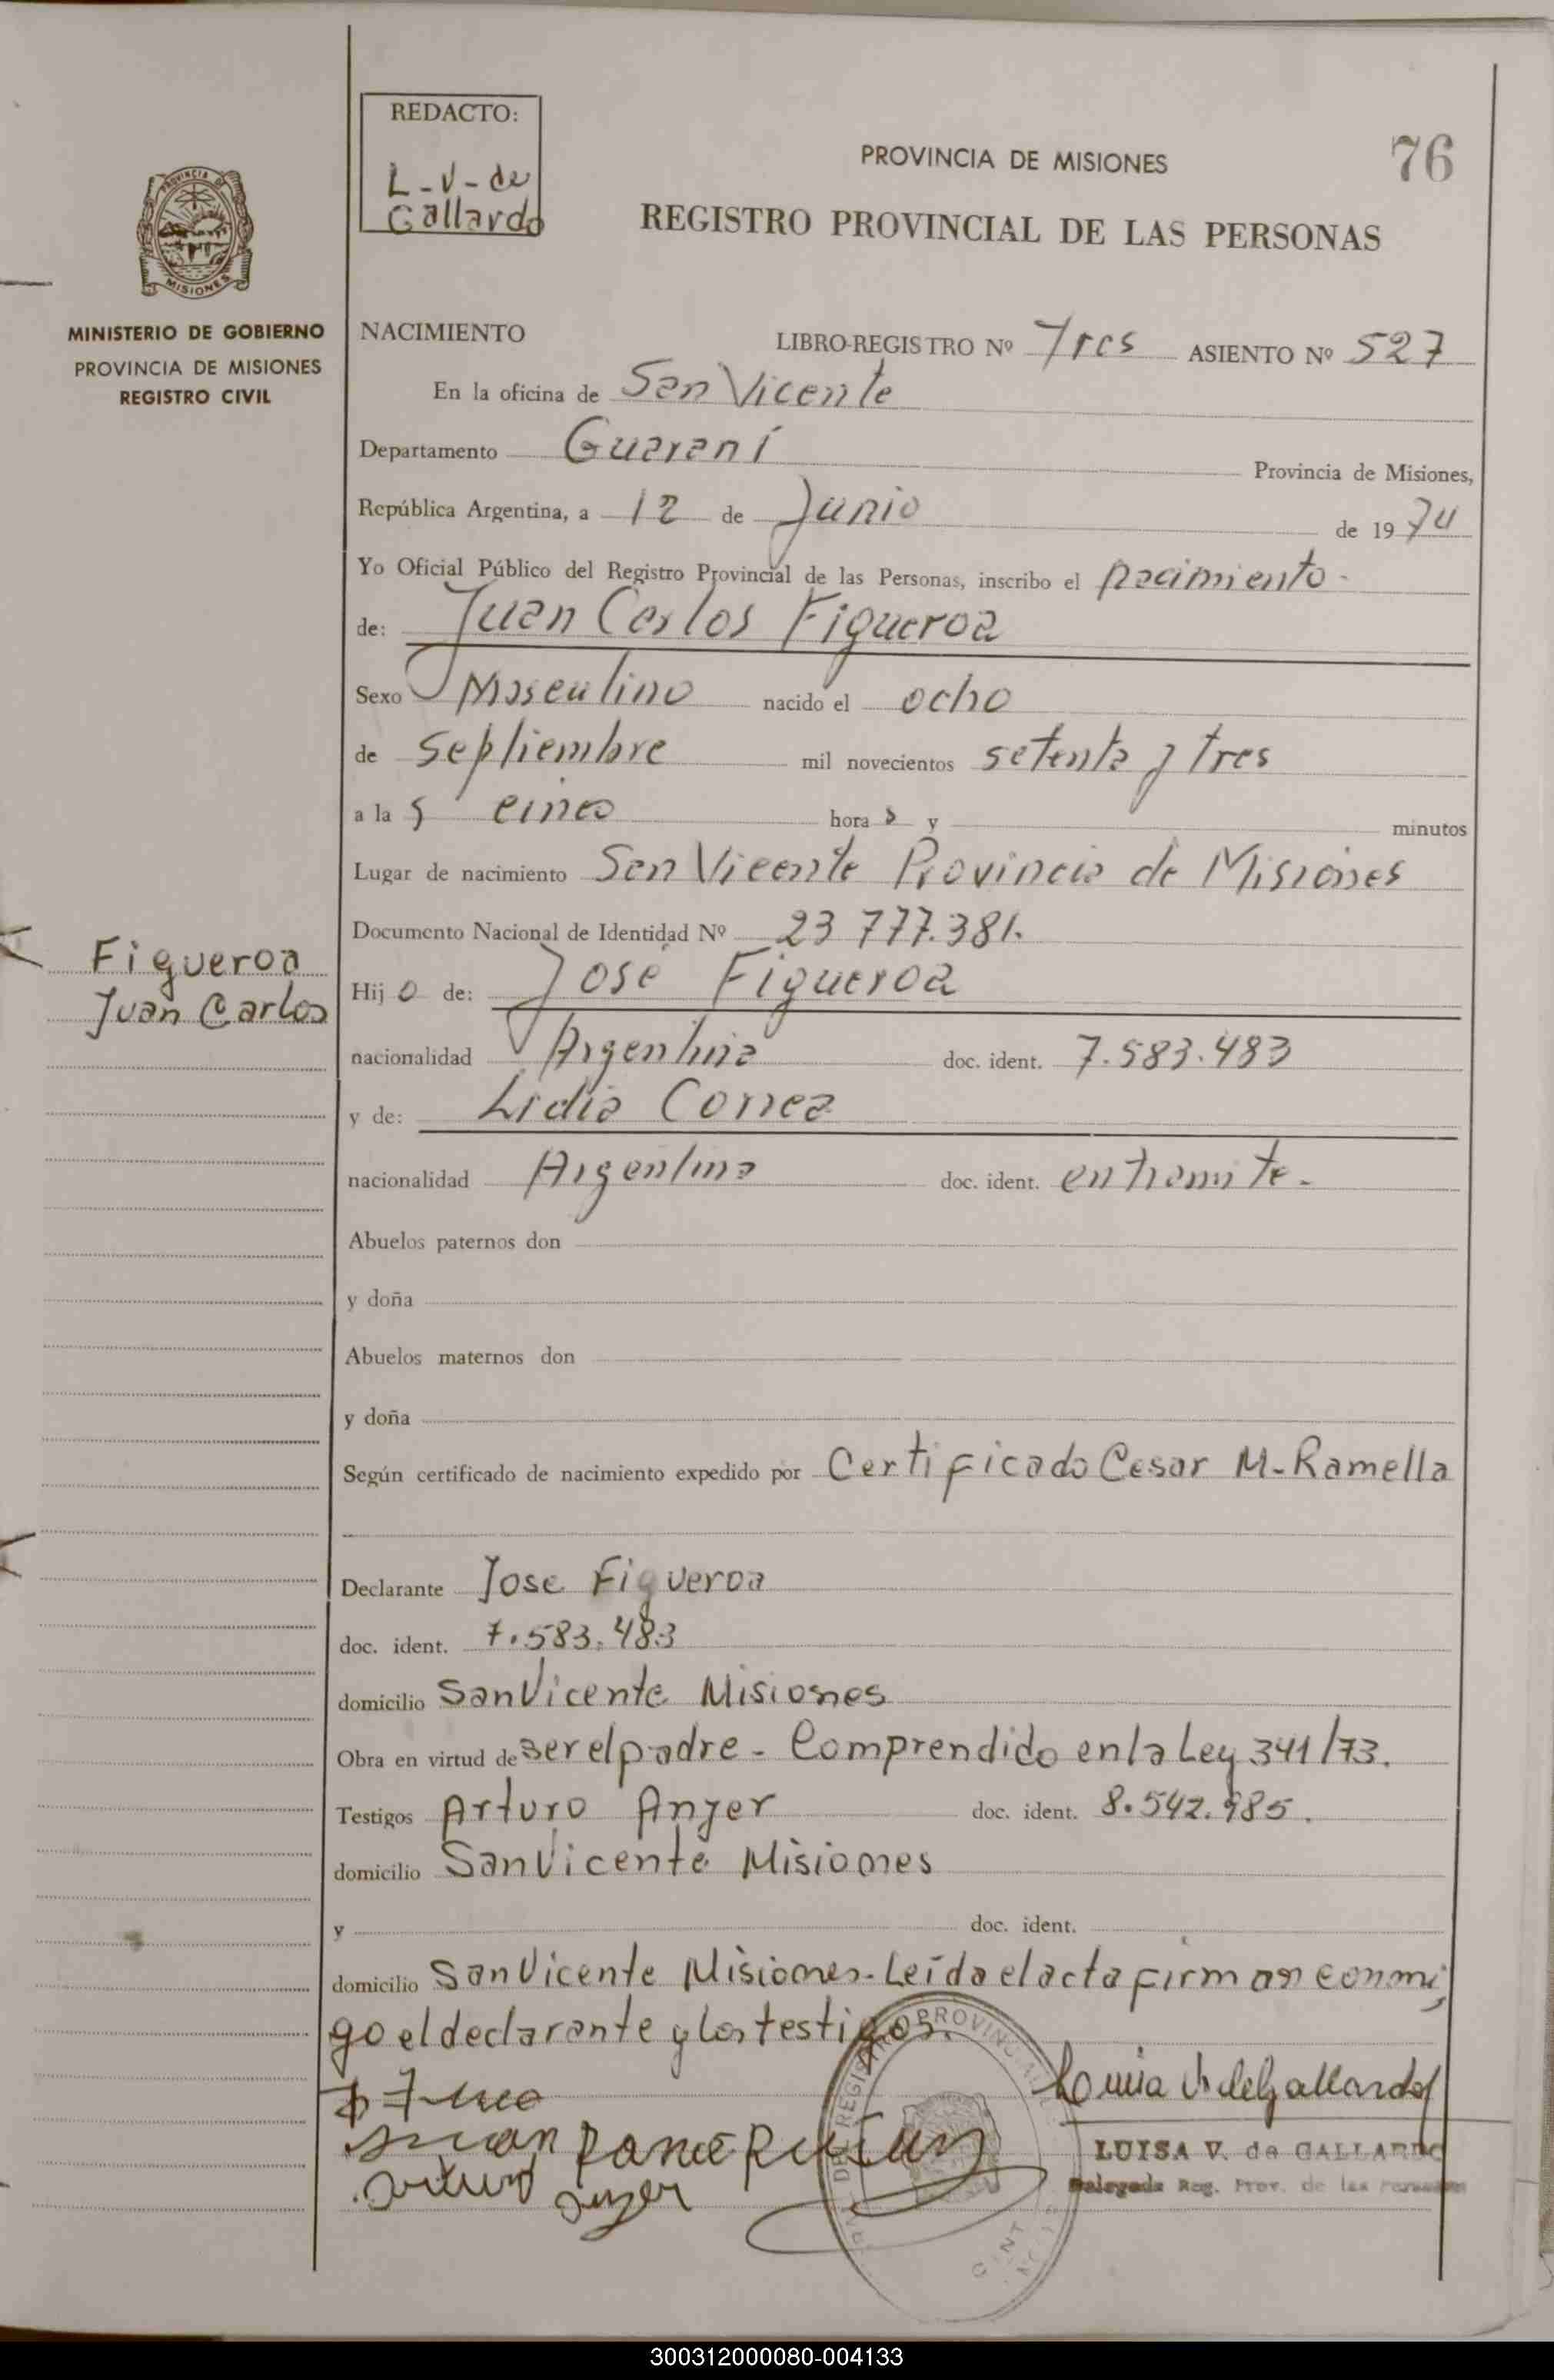 REDACTO:
L-V-de
Gallardo
PROVINCIA DE MISIONES
76
REGISTRO PROVINCIAL DE LAS PERSONAS
PROVINCIA DE
MISIONES
MINISTERIO DE GOBIERNO
PROVINCIA DE MISIONES
REGISTRO CIVIL
NACIMIENTO LIBRO-REGISTRO Nº Tres ASIENTO Nº 527
En la oficina de San Vicente
Departamento Guaraní Provincia de Misiones,
República Argentina, a 12 de Junio de 1974
Yo Oficial Público del Registro Provincial de las Personas, inscribo el nacimiento-
de: Juan Carlos Figueroa
Sexo Masculino nacido el ocho
de septiembre mil novecientos setenta y tres
a la s cinco hora s y minutos
Lugar de nacimiento San Vicente Provincia de Misiones
Documento Nacional de Identidad Nº 23 777.381.
Figueroa
Juan Carlos
Hijo de: José Figueroa
nacionalidad Argentina doc. ident. 7.583.483
y de: Lidia Correa
nacionalidad Argentina doc. ident. en tramite.
Abuelos paternos don
y doña
Abuelos maternos don
y doña
Según certificado de nacimiento expedido por Certificado Cesar M-Ramella
Declarante Jose Figueroa
doc. ident. 7.583.483
domicilio San Vicente Misiones
Obra en virtud de ser el padre - Comprendido en la Ley 341/73.
Testigos Arturo Anger doc. ident. 8.542.985.
domicilio San Vicente Misiones
y doc. ident.
domicilio San Vicente Misiones- Leída el acta firman conmi,
go el declarante y los testigos.
Luisa V. de Gallardo
Juan
Arturo Anger
LUISA V. de GALLARDO
Delegada Reg. Prov. de las Personas
300312000080-004133